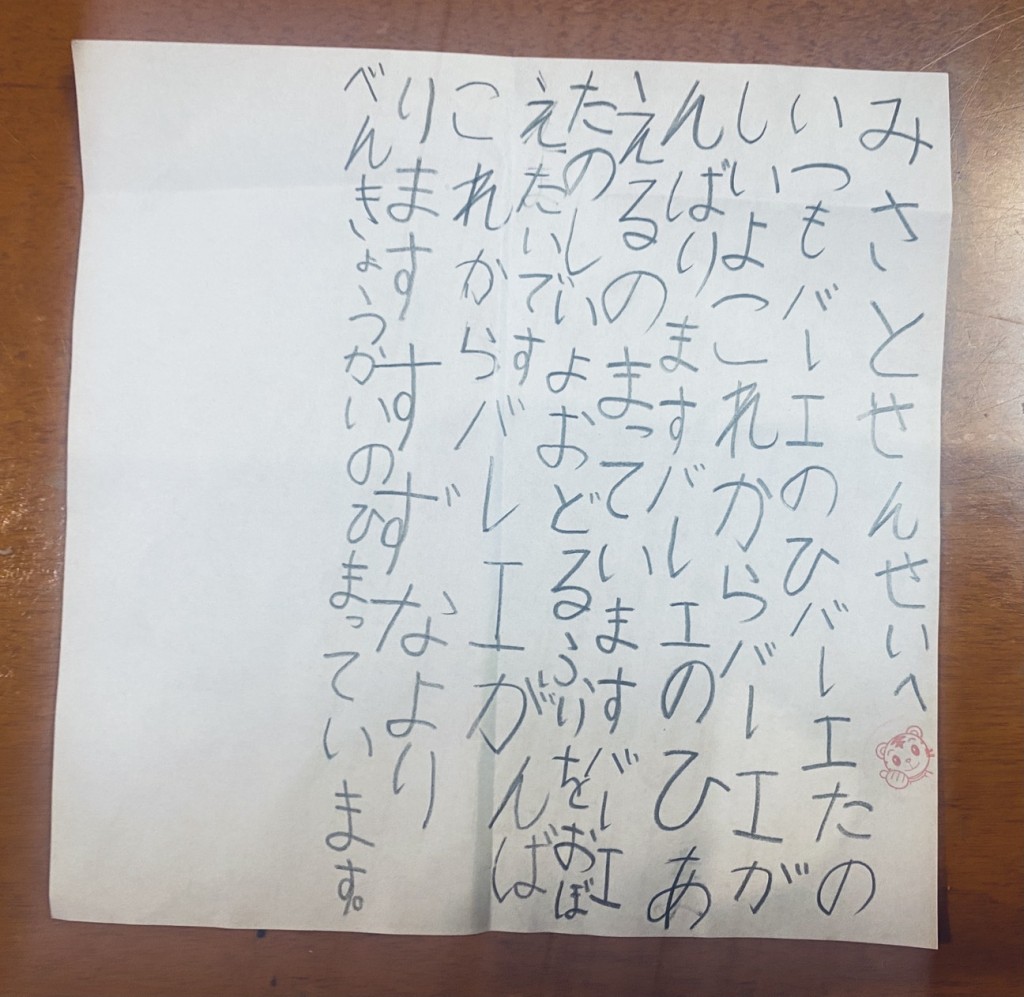 みさとせんせいへ
いつもバーエのひバーエたの
しいよこれからバーエが
んばりますバレエのひあ
えるのまっていますバーエ
たのしいよおどるふりをおぼ
えたいです
これからバレエがんば
ります すずなより
べんきょうかいのひまっています。